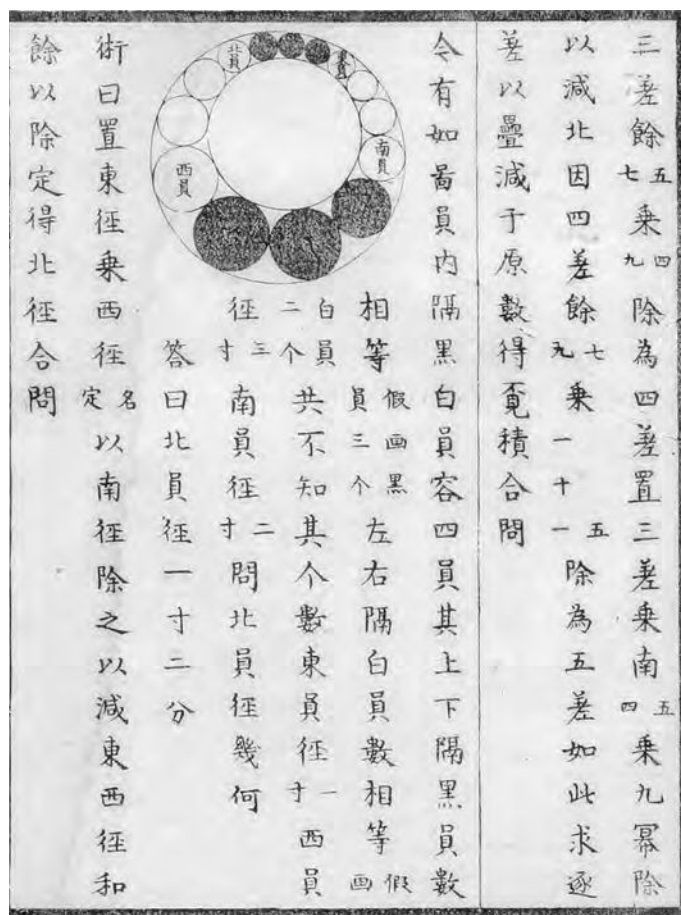 三差餘五七乗四九除為四差置三差乗南五四乗九冪除
以減北因四差餘七九乗一十一五除為五差如此求逐
差以疊減于原數得覔積合問
今有如啚員内隔黒白員容四員其上下隔黒員數
相等假画黒員三个左右隔白員數相等假画
白員二个共不知其个數東員径一寸西員
径三寸南員径二寸問北員径幾何
答曰北員径一寸二分
術曰置東径乗西径名定以南径除之以減東西径和
餘以除定得北径合問
東員
北員
南員
西員